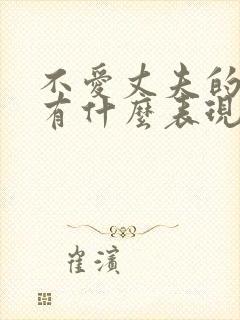 不愛丈夫的
有什麼表現
崔濱